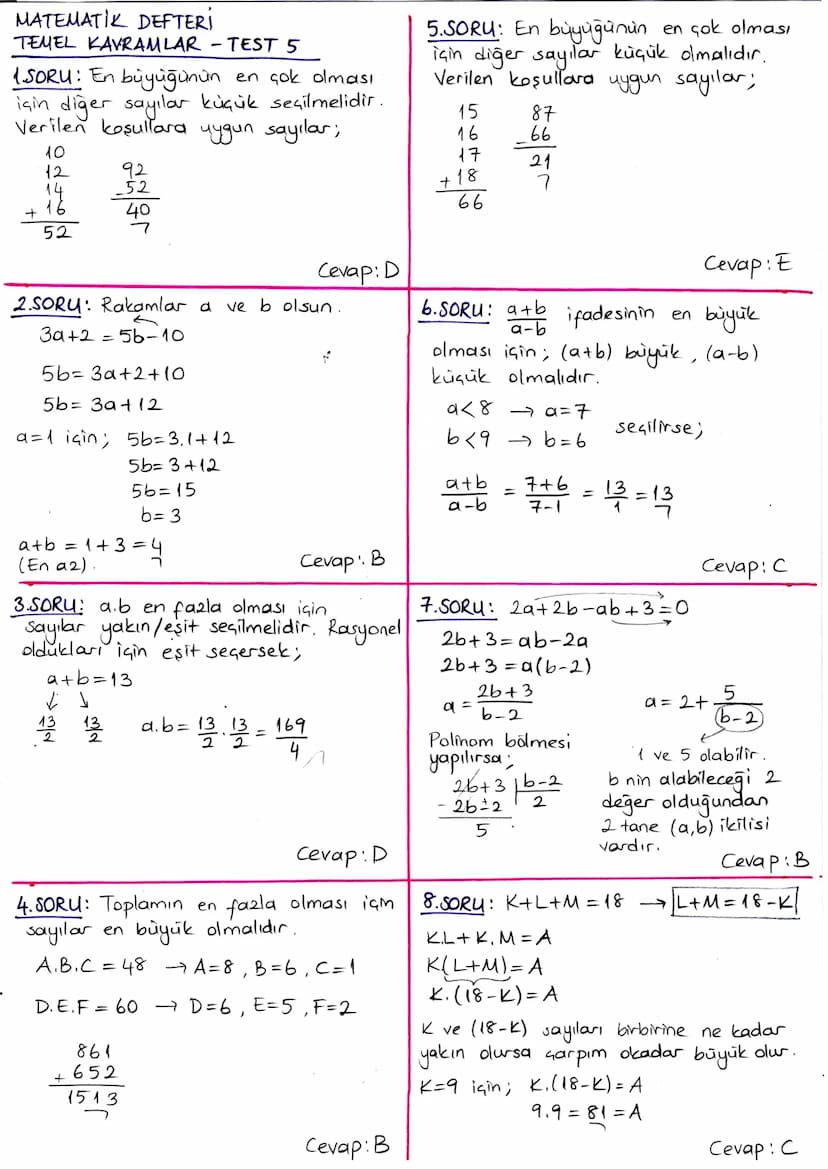 MATEMATİK DEFTERİ
TEMEL KAVRAMLAR - TEST 5
1.SORU: En büyüğünün en çok olması
için diğer sayılar küçük seçilmelidir.
Verilen koşullara uygun sayılar;
10
12
14
+ 16
52
92
-52
40
Cevap: D
2.SORU: Rakamlar a ve b olsun.
3a+2 = 5b-10
5b = 3a+2+10
5b = 3a+12
a=1 için; 5b=3.1+12
5b= 3+12
5b=15
b=3
a+b = 1+3 = 4
(En az).
Cevap: B
3.SORU: a.b en fazla olması için
sayılar yakın/eşit seçilmelidir. Rasyonel
oldukları için eşit seçersek;
a+b=13
13/2 13/2 a.b= 13/2 . 13/2 = 169/4
Cevap: D
4.SORU: Toplamın en fazla olması için
sayılar en büyük olmalıdır.
A.B.C = 48 → A=8, B=6, C=1
D.E.F = 60 → D=6, E=5, F=2
861
+ 652
1513
Cevap: B
5.SORU: En büyüğünün en çok olması
için diğer sayılar küçük olmalıdır.
Verilen koşullara uygun sayılar;
15
16
17
+ 18
66
87
-66
21
Cevap: E
6.SORU: a+b/a-b ifadesinin en büyük
olması için; (a+b) büyük, (a-b)
küçük olmalıdır.
a<8 → a=7
b<9 → b=6 seçilirse;
a+b/a-b = 7+6/7-1 = 13/1 = 13
Cevap: C
7.SORU: 2a+2b-ab+3=0
2b+3=ab-2a
2b+3 =a(b-2)
a= 2b+3/b-2
Polinom bölmesi
yapılırsa;
2b+3 | b-2
- 2b±2 2
5
a= 2+ 5/(b-2)
1 ve 5 olabilir.
b nin alabileceği 2
değer olduğundan
2 tane (a,b) ikilisi
vardır.
Cevap: B
8.SORU: K+L+M=18 → L+M=18-K
K.L+K.M=A
K(L+M)=A
K.(18-K)=A
K ve (18-K) sayıları birbirine ne kadar
yakın olursa çarpım okadar büyük olur.
K=9 için; K.(18-K)=A
9.9=81=A
Cevap: C